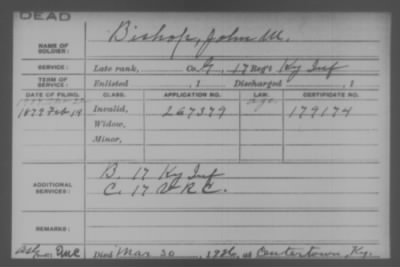 DEAD
NAME OF SOLDIER: Bishop, John M.
SERVICE: Late rank, Co. G, 17 Reg't Ky Inf
TERM OF SERVICE: Enlisted , 1 Discharged , 1
DATE OF FILING. CLASS. APPLICATION NO. LAW. CERTIFICATE NO.
1879 Feb 14 Invalid, 267379 age. 179174
Widow,
Minor,
ADDITIONAL SERVICES: B. 17 Ky Inf
C. 17 V R C.
REMARKS:
Died Mar 30, 1926, at Centertown, Ky.